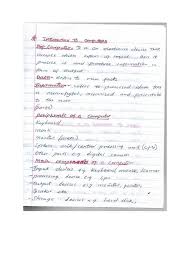 Introduction to Computers
Def Computer: It is an electronic device that
accepts data in form of input, then it
process it and produce information in
form of output.
Data - refers to raw facts
Information - refers to processed data that
is meaningful, and presented
to the user.
Peripherals of a Computer
Keyboard
mouse
monitor
system unit/central processing unit (CPU)
Other parts e.g digital camera
Main components of a Computer
- Input devices e.g Keyboard, mouse, scanner
- processing device e.g CPU
- Output devices e.g monitor, printer
- Storage devices e.g hard disk,